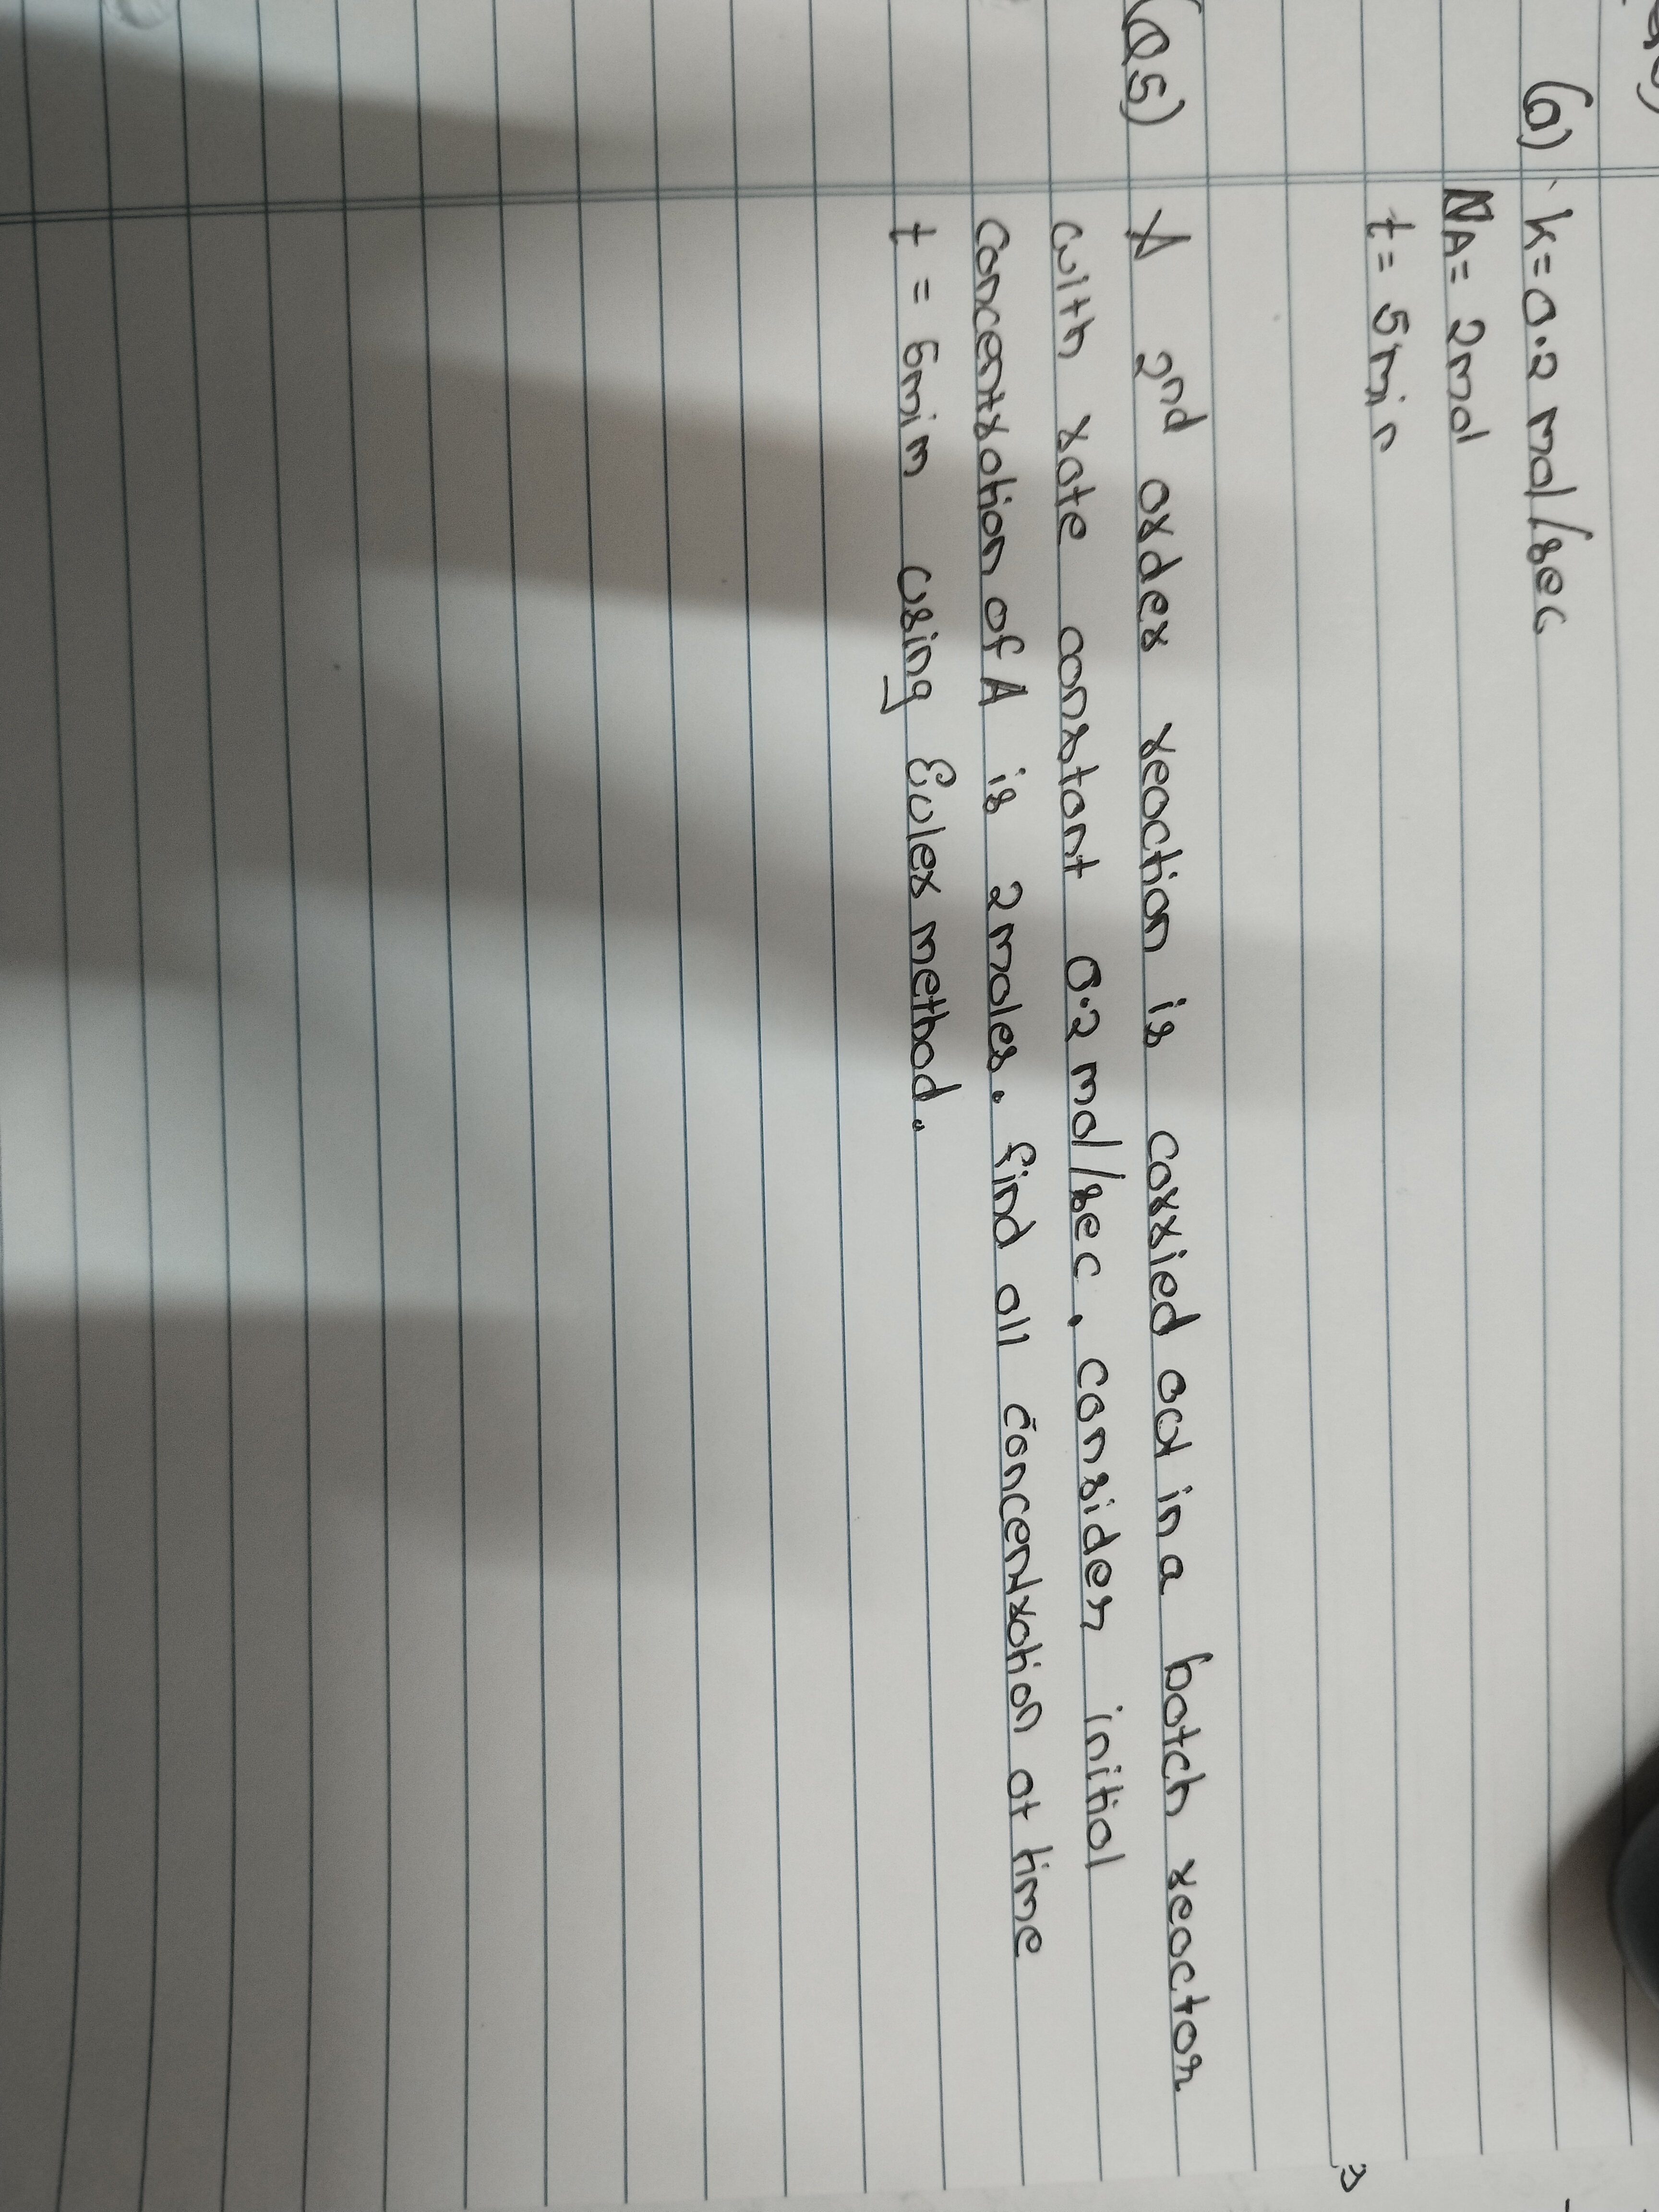 (a) K=0.2 mol/sec
NA= 2mol
t= 5min
(Q5) A 2nd order reaction is carried out in a batch reactor
with rate constant 0.2 mol/sec. consider initial
concentration of A is 2moles. find all concentration at time
t = 5min using Euler method.